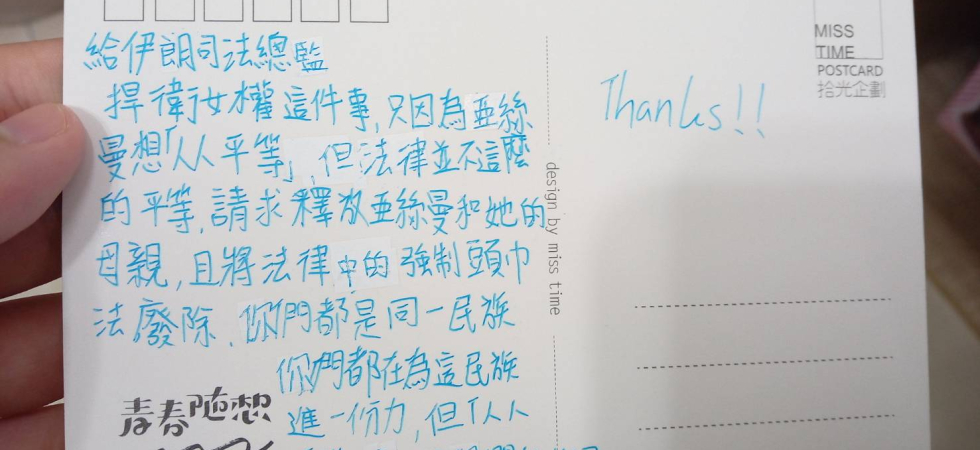 給伊朗司法總監
捍衛女權這件事,只因為亞絲
曼想「人人平等」,但法律並不這麼
的平等,請求釋放亞絲曼和她的
母親,且將法律中的強制頭巾
法廢除,你們都是同一民族
你們都在為這民族
進一份力,但「人人
青春隨想
design by miss time
Thanks!!
MISS
TIME
POSTCARD
拾光企劃